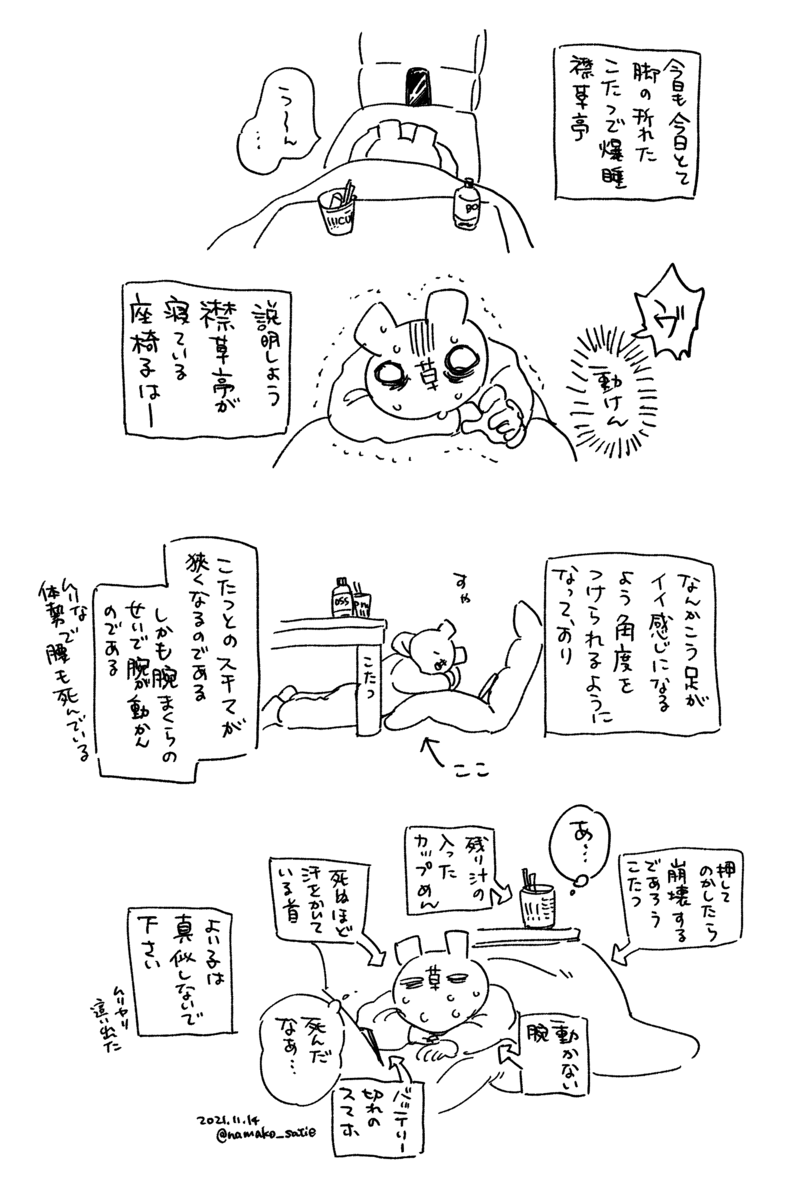 今日も今日とて
脚の折れた
こたつで爆睡
襟草亭
う〜ん
…
CUP
説明しよう
襟草亭が
寝ている
座椅子はー
草
動けん
なんかこう足が
イイ感じになる
よう角度を
つけられるように
なっており
すや
こたつ
ここ
こたつとのスキマが
狭くなるのである
しかも腕まくらの
せいで腕が動かん
のである
ムリな
体勢で腰も死んでいる
あ…
押して
のかしたら
崩壊する
であろう
こたつ
残り汁の
入った
カップめん
死ぬほど
汗をかいて
いる首
草
動かない
腕
死んだ
なあ…
バッテリー
切れの
スマホ
よい子は
真似しないで
下さい
ムリヤリ
這い出た
2021.11.14
@namako_satie